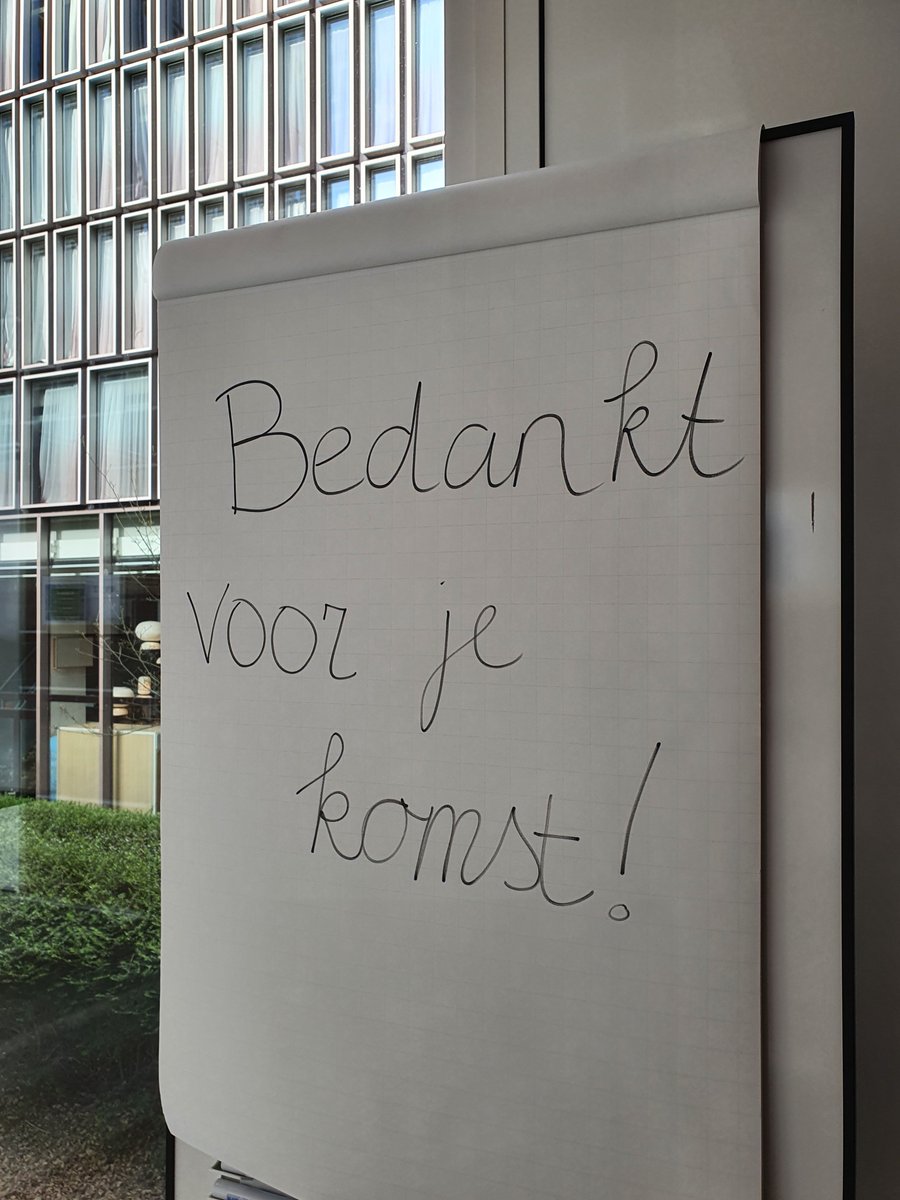 Bedankt
voor je
komst!